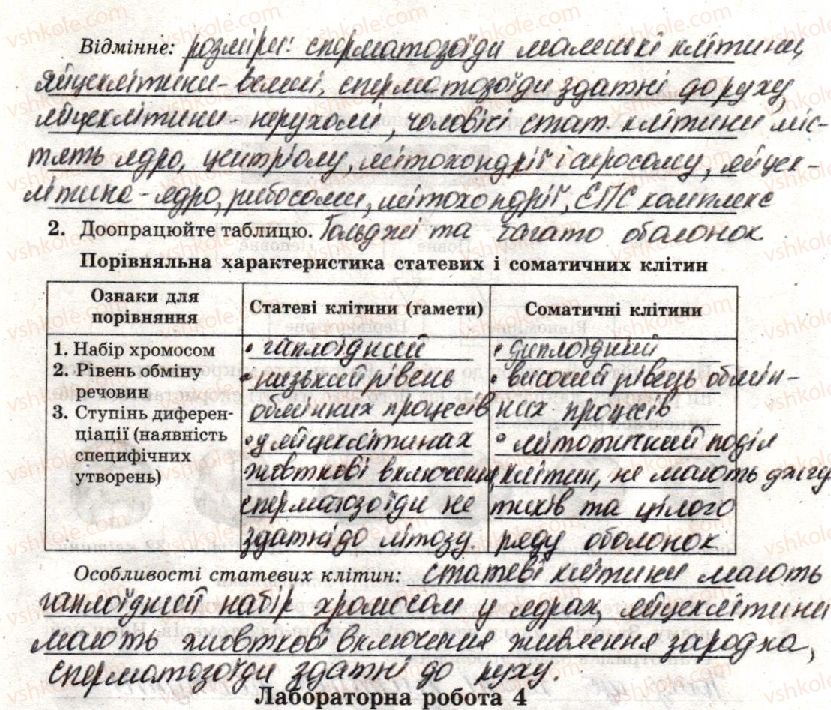 Відмінне: розміри: сперматозоїди маленькі клітини,
яйцеклітини - великі, сперматозоїди здатні до руху,
яйцеклітини - нерухомі, чоловічі стат. клітини міс-
тять ядро, центріолу, мітохондрії і акросому, яйцек-
літина - ядро, рибосоми, мітохондрії, ЕПС комплекс
2. Доопрацюйте таблицю. Гольджі та багато оболонок
Порівняльна характеристика статевих і соматичних клітин
Ознаки для порівняння
Статеві клітини (гамети)
Соматичні клітини
1. Набір хромосом
2. Рівень обміну
речовин
3. Ступінь диферен-
ціації (наявність
специфічних
утворень)
• гаплоїдний
• низький рівень
обмінних процесів
• у яйцеклітинах
жовткові включення,
сперматозоїди не
здатні до мітозу.
• диплоїдний
• високий рівень обмін-
них процесів
• мітотичний поділ
клітин, не мають джгу
тиків та цілого
ряду оболонок
Особливості статевих клітин: статеві клітини мають
гаплоїдний набір хромосом у ядрах, яйцеклітини
мають жовткові включення живлення зародка,
сперматозоїди здатні до руху.
Лабораторна робота 4
vshkole.com